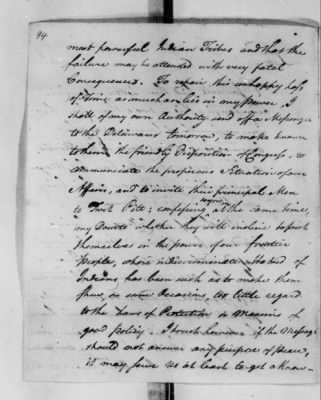 94
most powerful Indian Tribes and that the
failure may be attended with very fatal
Consequences. To repair this unhappy loss
of Time as much as lies in my power, I
shall of my own Authority send off a Messenger
to the Delawares tomorrow, to make known
to them the friendly Disposition of Congress, to
communicate the prosperous Situation of our
Affairs, and to invite their principal Men
to Fort Pitt; confessing at the same time,
my Doubts whether they will incline to put
themselves in the power of our frontier
People, whose indiscriminate Hatred of
Indians has been such as to make them
shew, on some Occasions, too little regard
to the Laws of Protection or Maxims of
good Policy. I trust however if the Message
should not answer any purpose of Peace,
it may serve us at least to get a Know-